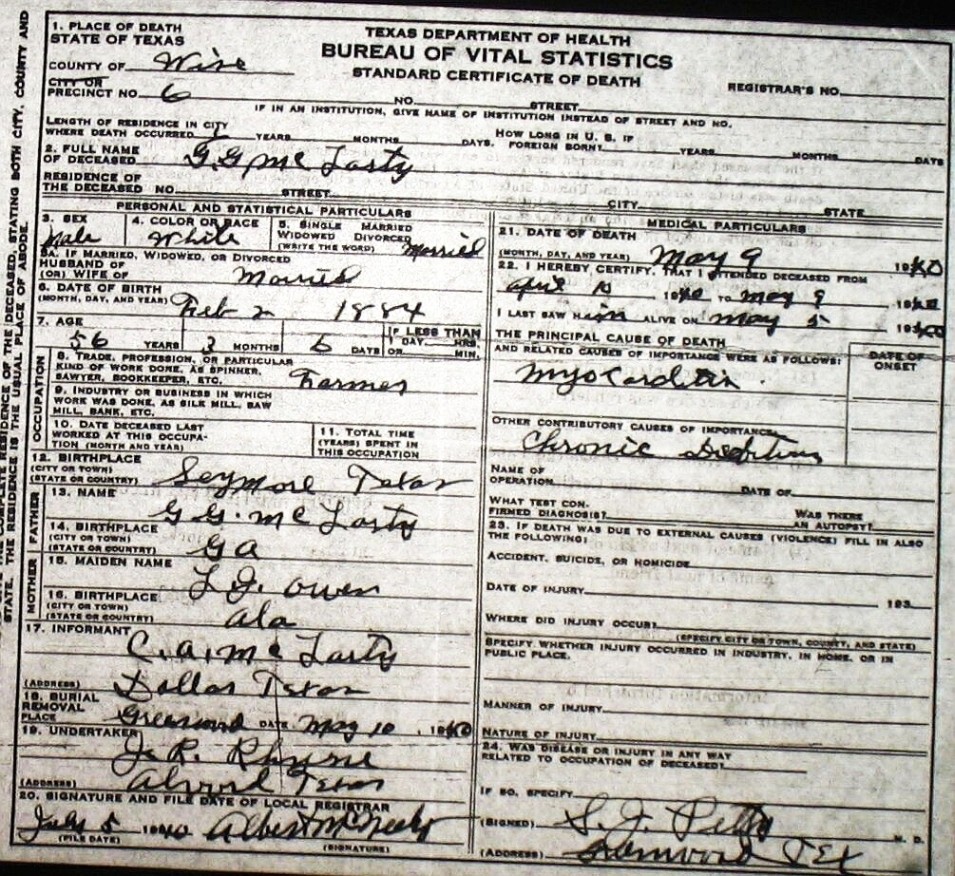 STATE. THE RESIDENCE IS THE USUAL PLACE OF ABODE.
RESIDENCE OF THE DECEASED, STATING BOTH CITY, COUNTY AND
TEXAS DEPARTMENT OF HEALTH
BUREAU OF VITAL STATISTICS
STANDARD CERTIFICATE OF DEATH
1. PLACE OF DEATH
STATE OF TEXAS
COUNTY OF Wise
REGISTRAR'S NO.
CITY OR
PRECINCT NO. 6 NO. STREET
IF IN AN INSTITUTION, GIVE NAME OF INSTITUTION INSTEAD OF STREET AND NO.
LENGTH OF RESIDENCE IN CITY
WHERE DEATH OCCURRED YEARS MONTHS DAYS. HOW LONG IN U. S. IF FOREIGN BORN? YEARS MONTHS DAYS
2. FULL NAME
OF DECEASED G G Mc Larty
RESIDENCE OF
THE DECEASED NO. STREET CITY STATE
PERSONAL AND STATISTICAL PARTICULARS
3. SEX 4. COLOR OR RACE 5. SINGLE MARRIED
WIDOWED DIVORCED
(WRITE THE WORD)
Male White Married
5A. IF MARRIED, WIDOWED, OR DIVORCED
HUSBAND OF
(OR) WIFE OF Married
6. DATE OF BIRTH
(MONTH, DAY, AND YEAR) Feb 2 1884
7. AGE IF LESS THAN
56 YEARS 3 MONTHS 6 DAYS 1 DAY HRS.
OR MIN.
OCCUPATION
8. TRADE, PROFESSION, OR PARTICULAR
KIND OF WORK DONE, AS SPINNER,
SAWYER, BOOKKEEPER, ETC. Farmer
9. INDUSTRY OR BUSINESS IN WHICH
WORK WAS DONE, AS SILK MILL, SAW
MILL, BANK, ETC.
10. DATE DECEASED LAST
WORKED AT THIS OCCUPA-
TION (MONTH AND YEAR)
11. TOTAL TIME
(YEARS) SPENT IN
THIS OCCUPATION
12. BIRTHPLACE
(CITY OR TOWN)
(STATE OR COUNTRY) Seymore Texas
FATHER
13. NAME
G G. Mc Larty
14. BIRTHPLACE
(CITY OR TOWN)
(STATE OR COUNTRY) Ga
MOTHER
15. MAIDEN NAME
L. J. Owen
16. BIRTHPLACE
(CITY OR TOWN)
(STATE OR COUNTRY) Ala
17. INFORMANT
C. A. Mc Larty
(ADDRESS) Dallas Texas
18. BURIAL
REMOVAL
PLACE Greenwood DATE May 10, 1940
19. UNDERTAKER
J. R. Rhyne
(ADDRESS) Alvord Texas
20. SIGNATURE AND FILE DATE OF LOCAL REGISTRAR
July 5 1940 Albert McNeely
(FILE DATE) (SIGNATURE)
MEDICAL PARTICULARS
21. DATE OF DEATH
(MONTH, DAY, AND YEAR) May 9 1940
22. I HEREBY CERTIFY, THAT I ATTENDED DECEASED FROM
April 10 1940 TO May 9 1940
I LAST SAW H im ALIVE ON May 5 1940
THE PRINCIPAL CAUSE OF DEATH
AND RELATED CAUSES OF IMPORTANCE WERE AS FOLLOWS:
DATE OF
ONSET
Myocarditis.
OTHER CONTRIBUTORY CAUSES OF IMPORTANCE
Chronic
NAME OF
OPERATION DATE OF
WHAT TEST CON-
FIRMED DIAGNOSIS? WAS THERE
AN AUTOPSY?
23. IF DEATH WAS DUE TO EXTERNAL CAUSES (VIOLENCE) FILL IN ALSO
THE FOLLOWING:
ACCIDENT, SUICIDE, OR HOMICIDE
DATE OF INJURY 193
WHERE DID INJURY OCCUR?
(SPECIFY CITY OR TOWN, COUNTY, AND STATE)
SPECIFY WHETHER INJURY OCCURRED IN INDUSTRY, IN HOME, OR IN
PUBLIC PLACE.
MANNER OF INJURY
NATURE OF INJURY
24. WAS DISEASE OR INJURY IN ANY WAY
RELATED TO OCCUPATION OF DECEASED?
IF SO, SPECIFY
(SIGNED) S. J. Petty M. D.
(ADDRESS) Greenwood Tex